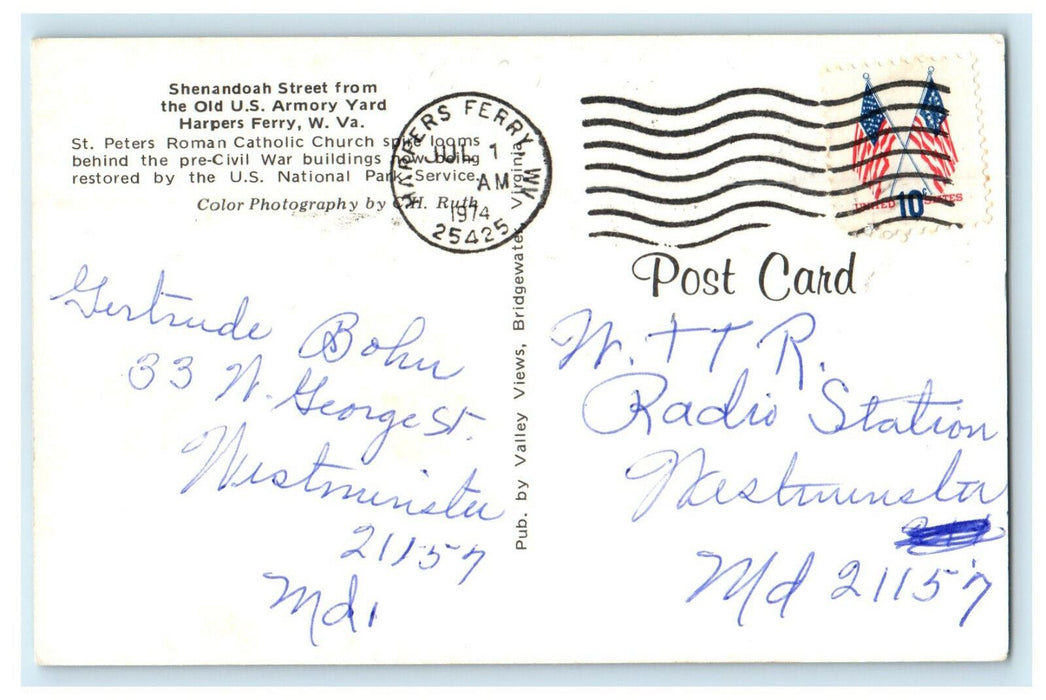 Shenandoah Street from
the Old U.S. Armory Yard
Harpers Ferry, W. Va.
St. Peters Roman Catholic Church spire looms
behind the pre-Civil War buildings now being
restored by the U.S. National Park Service.
Color Photography by C.H. Ruth
HARPERS FERRY WV
JUL 1
AM
1974
25425
UNITED 10c STATES
Post Card
Pub. by Valley Views, Bridgewater, Virginia
Gertrude Bohn
33 W. George St.
Westminster
21157
Md.
W. T T R.
Radio Station
Westminster
Md 21157